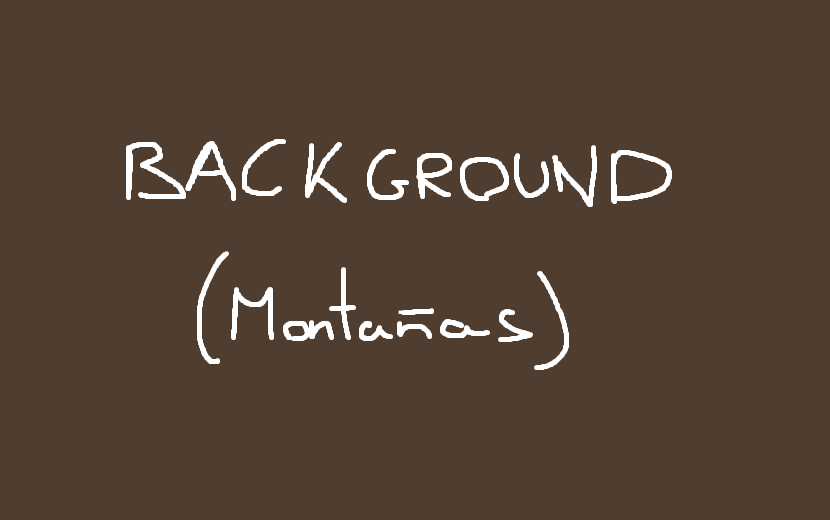 BACKGROUND
(Montañas)